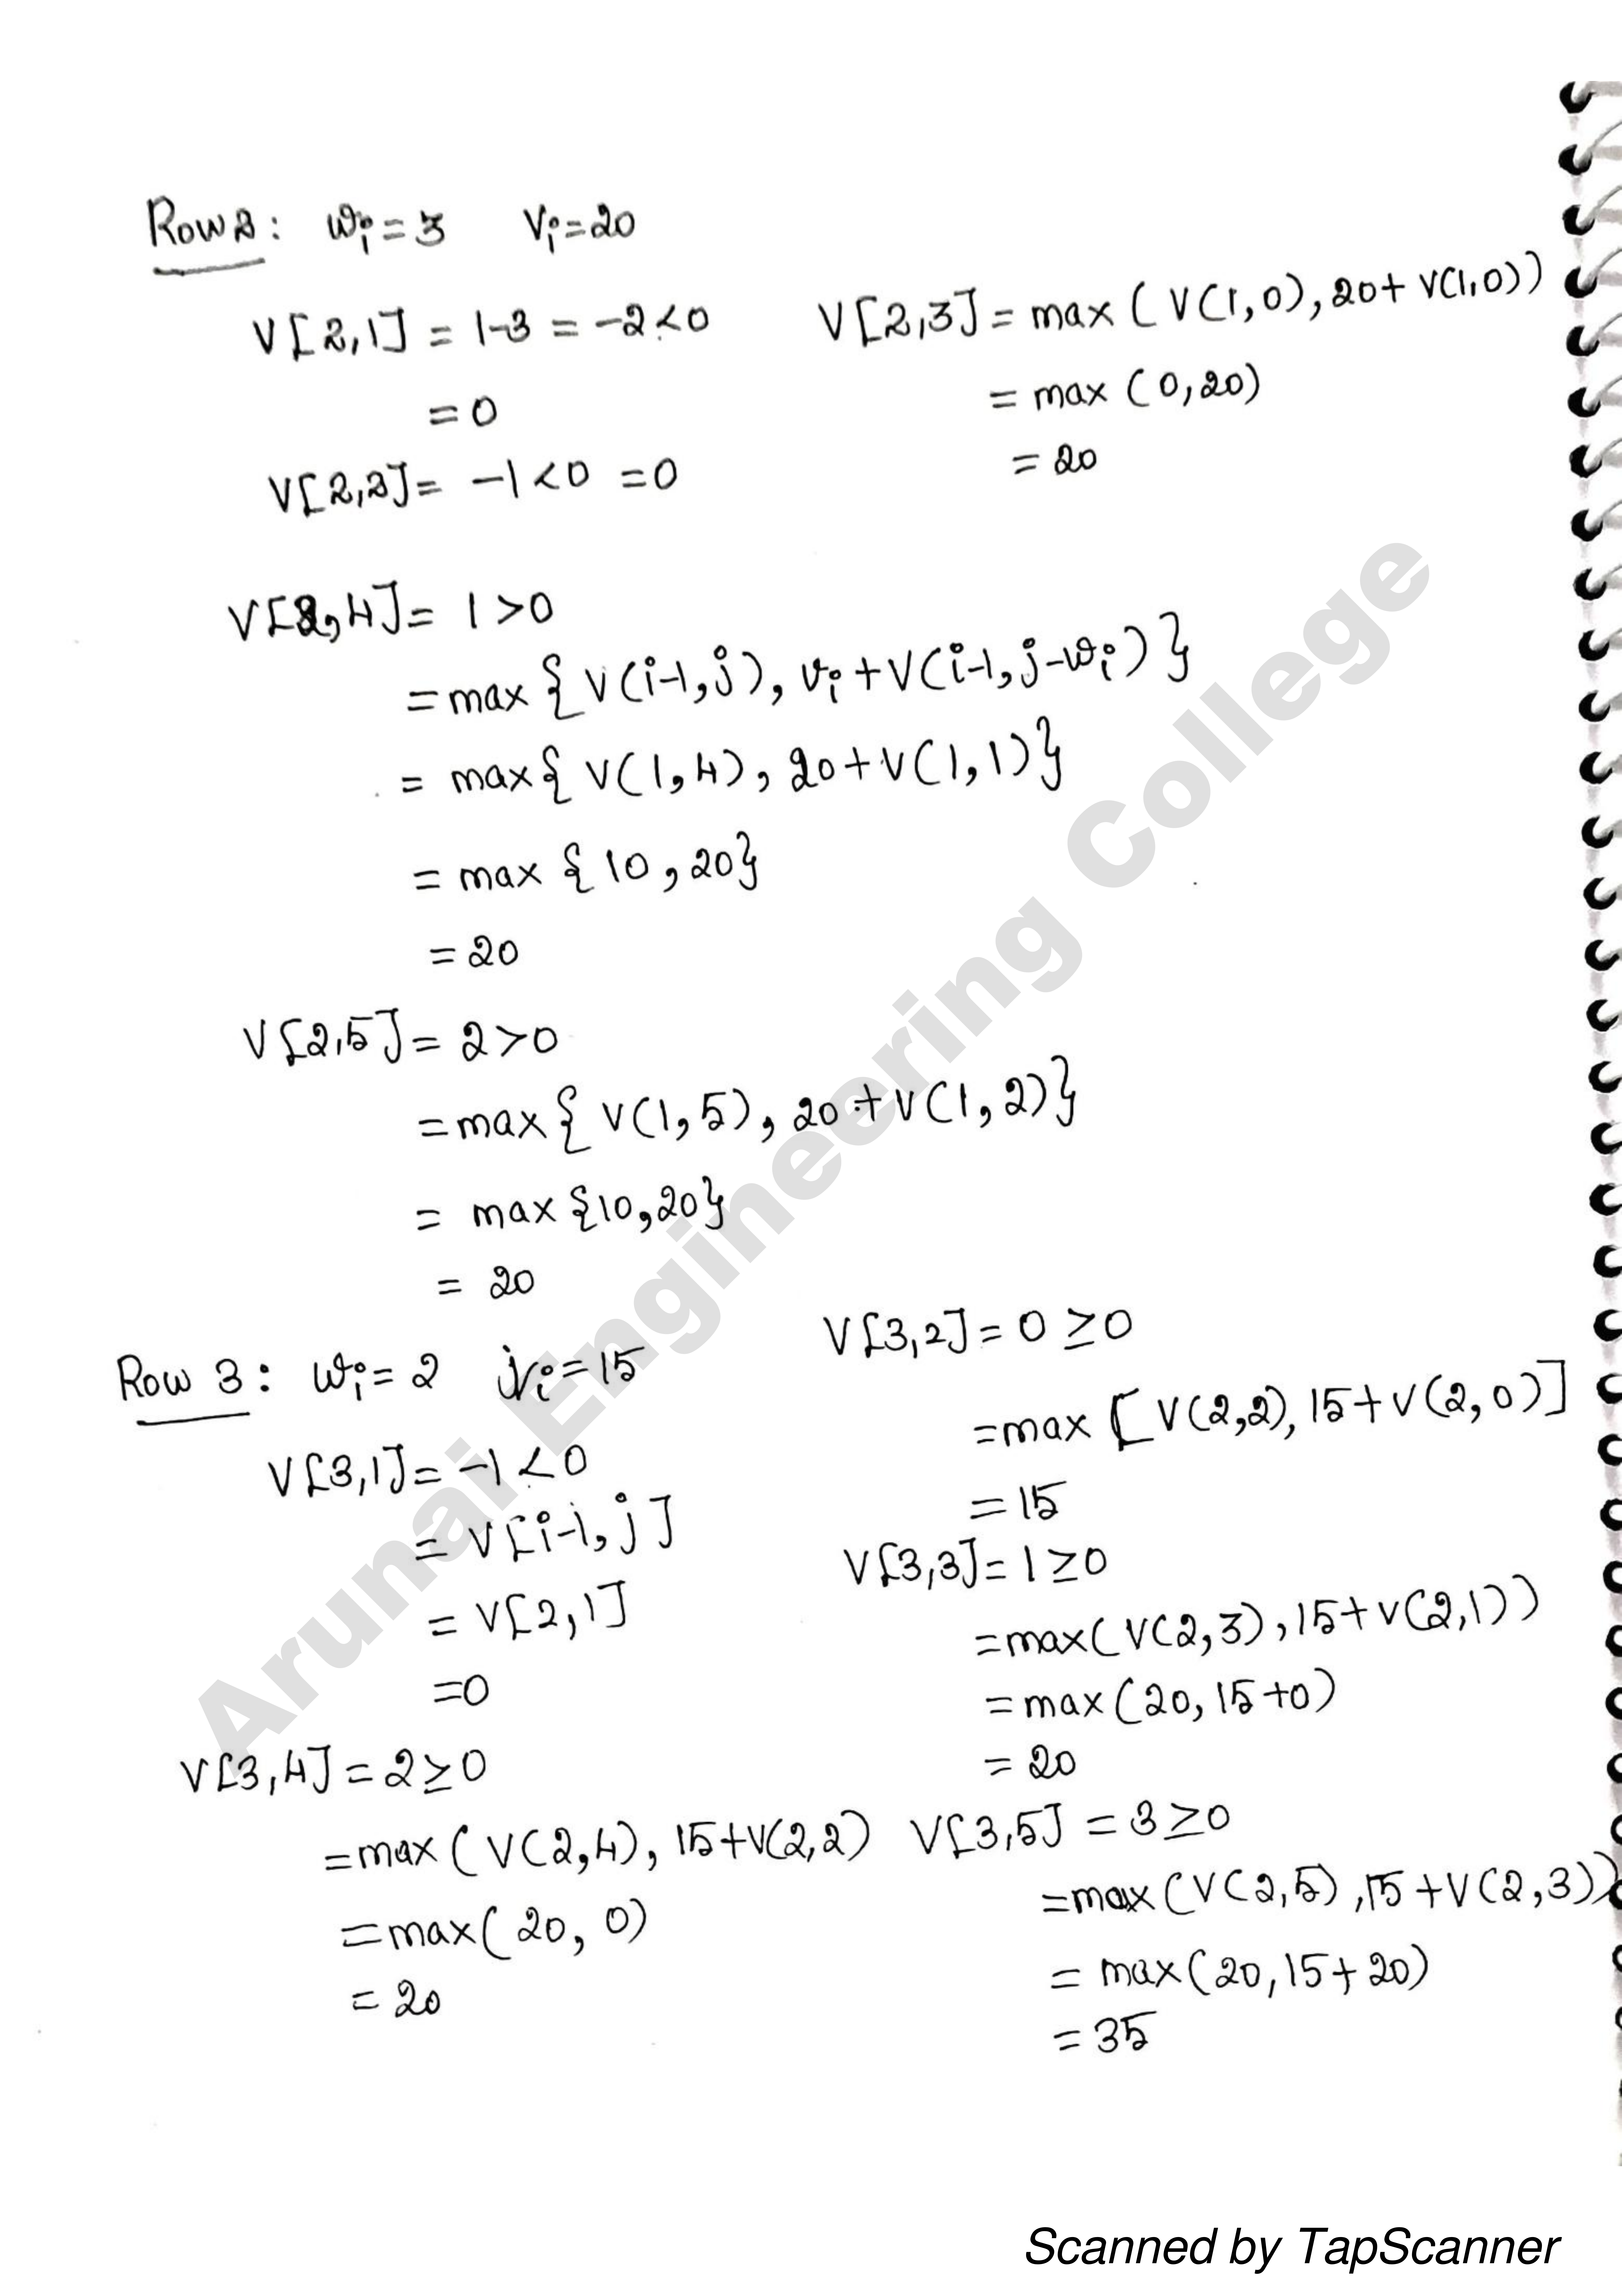 Row 2: wi = 3 Vi = 20
V[2,1] = 1-3 = -2 < 0
= 0
V[2,2] = -1 < 0 = 0
V[2,3] = max (V(1,0), 20 + V(1,0))
= max (0, 20)
= 20
V[2,4] = 1 > 0
= max { V(i-1, j), vi + V(i-1, j-wi) }
= max { V(1,4), 20 + V(1,1) }
= max { 10, 20 }
= 20
V[2,5] = 2 > 0
= max { V(1,5), 20 + V(1,2) }
= max {10, 20}
= 20
Row 3: wi = 2 Vi = 15
V[3,1] = -1 < 0
= V[i-1, j]
= V[2,1]
= 0
V[3,2] = 0 ≥ 0
= max [ V(2,2), 15 + V(2,0) ]
= 15
V[3,3] = 1 ≥ 0
= max( V(2,3), 15 + V(2,1) )
= max (20, 15+0)
= 20
V[3,4] = 2 ≥ 0
= max ( V(2,4), 15+V(2,2)
= max ( 20, 0)
= 20
V[3,5] = 3 ≥ 0
= max (V(2,5), 15 + V(2,3))
= max (20, 15+20)
= 35
Arunai Engineering College
Scanned by TapScanner